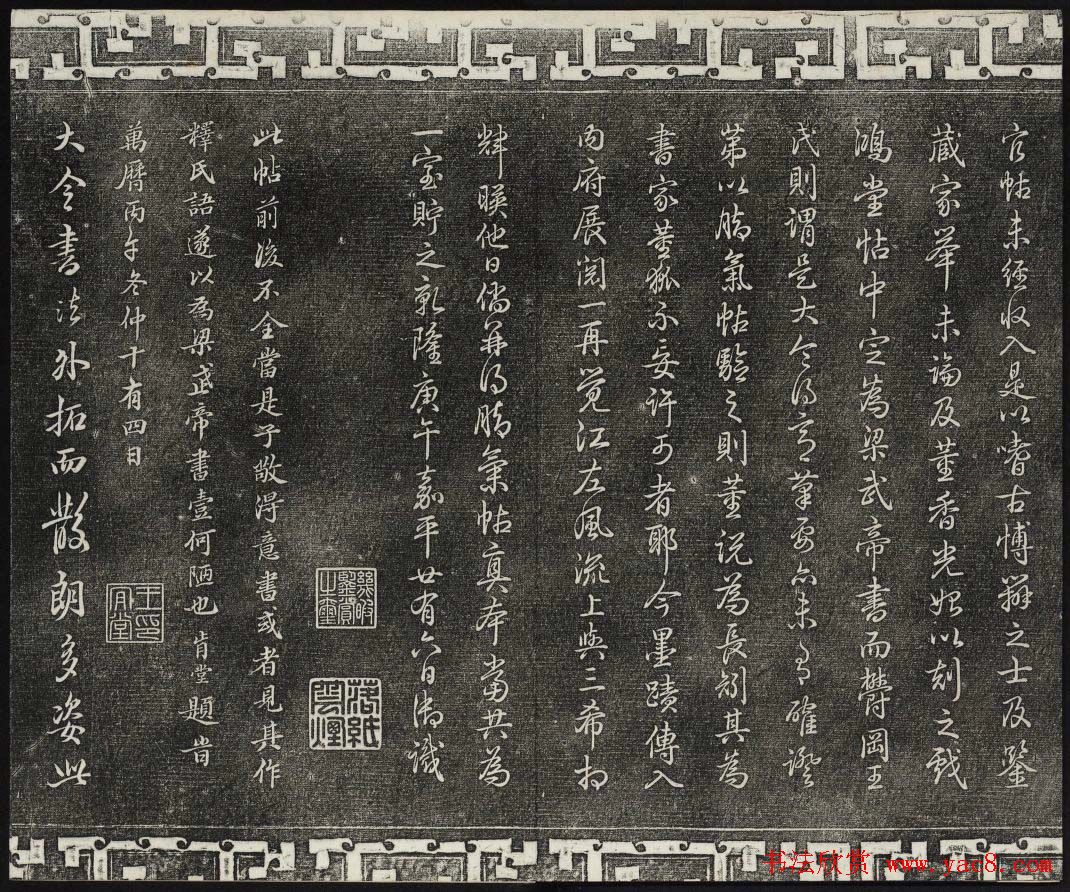 官帖未經收入是以嗜古博辯之士及鑒
藏家舉未論及董香光始以刻之戲
鴻堂帖中定為梁武帝書而欝岡王
氏則謂是大令得意筆要亦未有確證
第以鵝氣帖驗之則董說為長矧其為
書家董狐不妄許可者耶今墨蹟傳入
內府展閱一再覺江左風流上與三希相
輝暎他日倘并得鵝氣帖真本當共為
一室貯之乾隆庚午嘉平廿有六日御識
幾暇鑒賞之璽
落紙雲煙
此帖前後不全當是子敬得意書或者見其作
釋氏語遂以為梁武帝書壹何陋也肯堂題旹
萬曆丙午冬仲十有四日
王肯堂印
大令書法外拓而散朗多姿此
书法欣赏 www.yac8.com